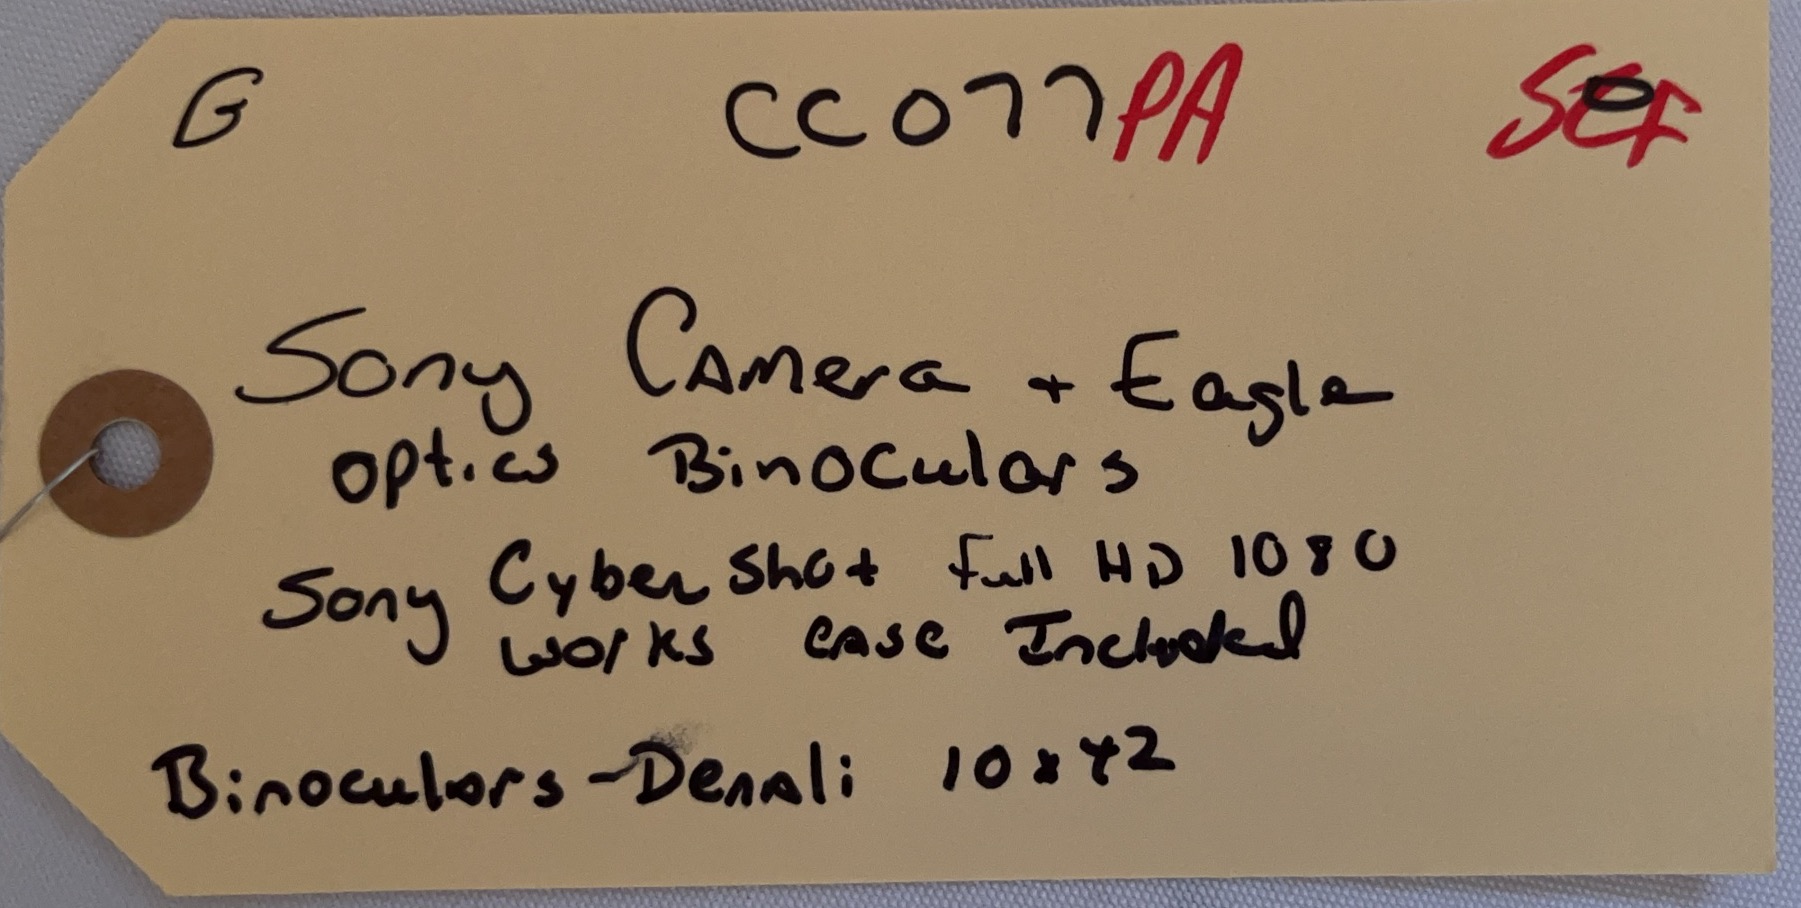 G CC077PA SEF
Sony Camera + Eagle
optics Binoculars
Sony Cyber shot Full HD 1080
works case Included
Binoculars - Denali 10x42